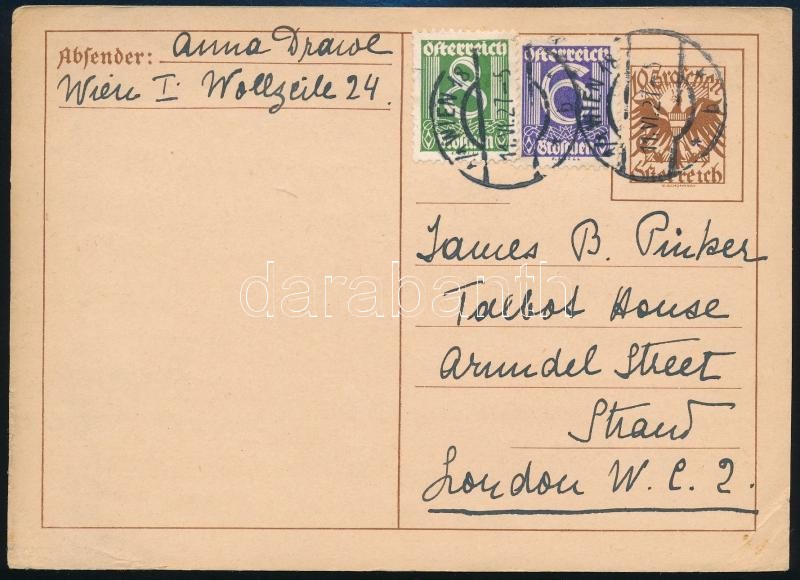 Absender: Anna Drawe
Wien I. Wollzeile 24.
Österreich
8
Groschen
Österreich
6
Groschen
10 Groschen
Österreich
WIEN
WIEN
James B. Pinker
Talbot House
Arundel Street
Strand
London W. C. 2.
darabanth